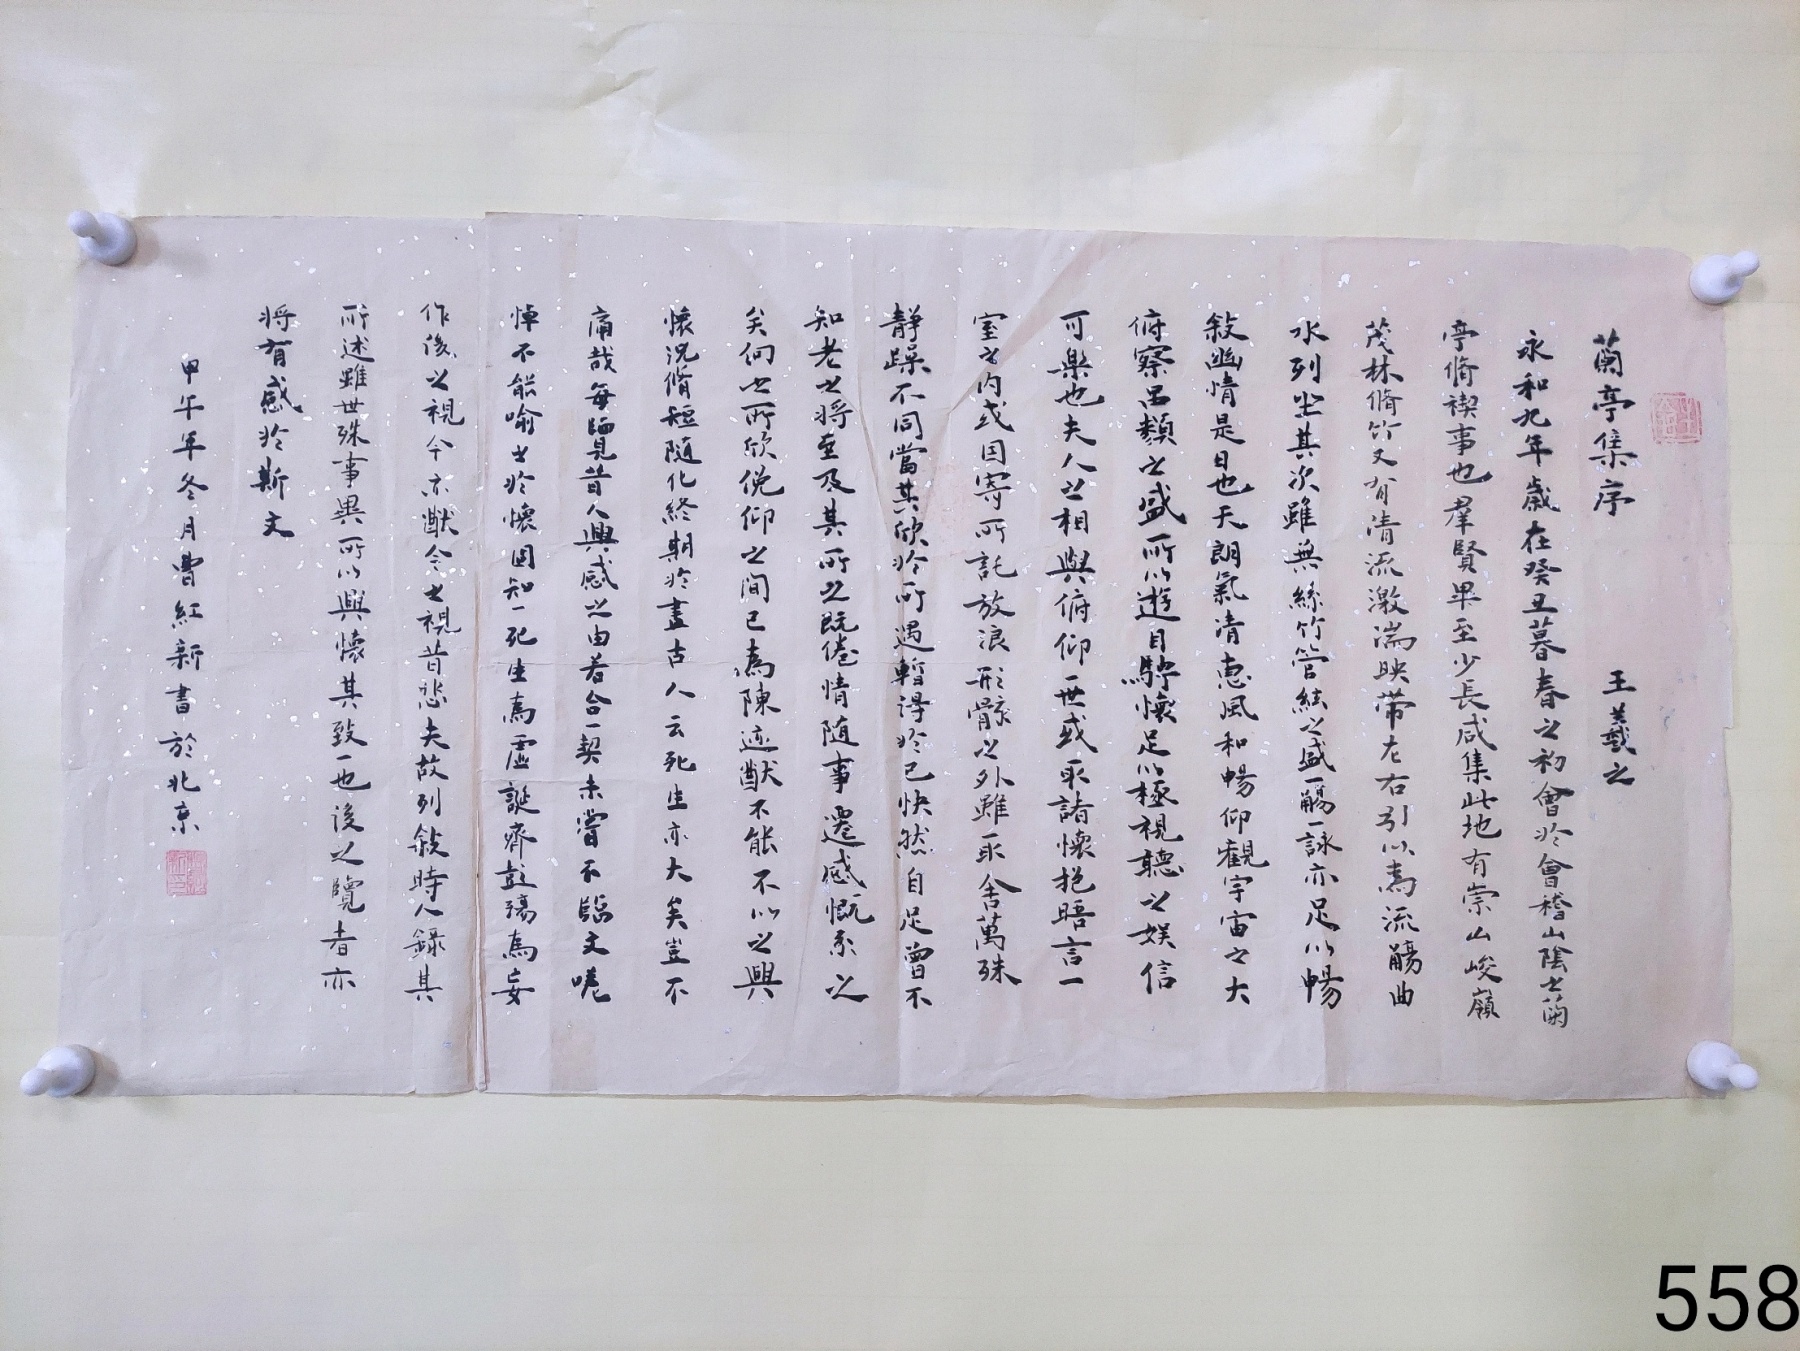 蘭亭集序 王羲之
永和九年歲在癸丑暮春之初會於會稽山陰之蘭
亭脩禊事也羣賢畢至少長咸集此地有崇山峻嶺
茂林脩竹又有清流激湍映帶左右引以為流觴曲
水列坐其次雖無絲竹管絃之盛一觴一詠亦足以暢
敘幽情是日也天朗氣清惠風和暢仰觀宇宙之大
俯察品類之盛所以遊目騁懷足以極視聽之娛信
可樂也夫人之相與俯仰一世或取諸懷抱晤言一
室之內或因寄所託放浪形骸之外雖取舍萬殊
靜躁不同當其欣於所遇暫得於己快然自足曾不
知老之將至及其所之既倦情隨事遷感慨系之
矣向之所欣俛仰之間已為陳迹猷不能不以之興
懷況脩短隨化終期於盡古人云死生亦大矣豈不
痛哉每覽昔人興感之由若合一契未嘗不臨文嗟
悼不能喻之於懷固知一死生為虛誕齊彭殤為妄
作後之視今亦猷今之視昔悲夫故列敘時人錄其
所述雖世殊事異所以興懷其致一也後之覽者亦
將有感於斯文
甲午年冬月曹紅新書於北京
558